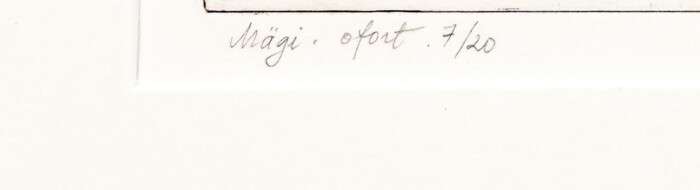 Mägi. ofort. 7/20